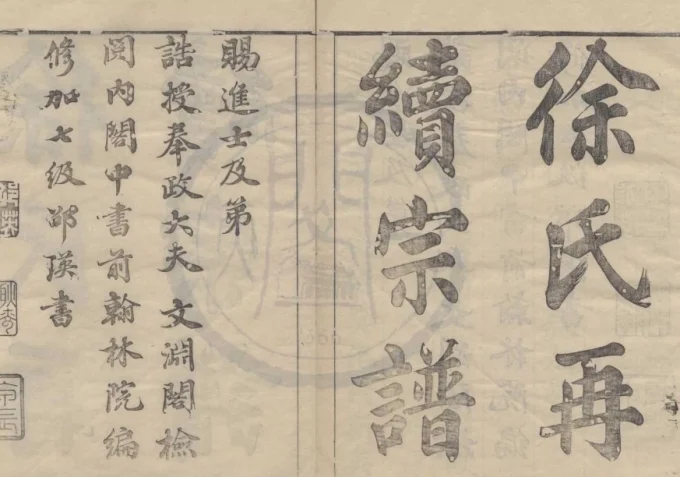 徐氏再
續宗譜
賜進士及第
誥授奉政大夫文淵閣檢
閱內閣中書前翰林院編
修加七級邵瑛書